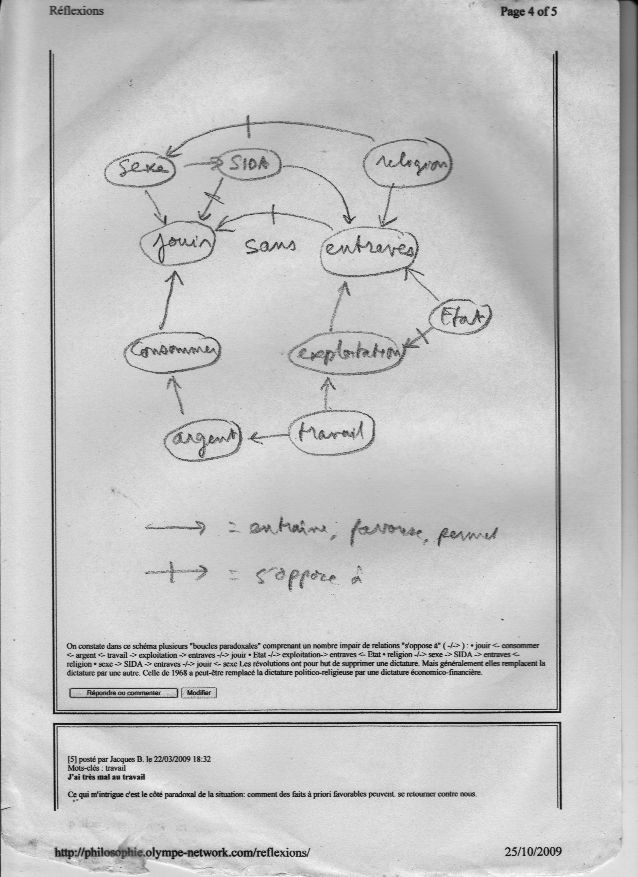 Réflexions
Page 4 of 5
sexe
SIDA
religion
jouir
sans
entraves
Etat
consommer
exploitation
argent
travail
= entraîne, favorise, permet
= s'oppose à
On constate dans ce schéma plusieurs "boucles paradoxales" comprenant un nombre impair de relations "s'oppose à" ( -/-> ) : • jouir <- consommer
<- argent <- travail -> exploitation -> entraves -/-> jouir • Etat -/-> exploitation-> entraves <- Etat • religion -/-> sexe -> SIDA -> entraves <-
religion • sexe -> SIDA -> entraves -/-> jouir <- sexe Les révolutions ont pour but de supprimer une dictature. Mais généralement elles remplacent la
dictature par une autre. Celle de 1968 a peut-être remplacé la dictature politico-religieuse par une dictature économico-financière.
Répondre ou commenter
Modifier
[5] posté par Jacques B. le 22/03/2009 18:32
Mots-clés : travail
J'ai très mal au travail
Ce qui m'intrigue c'est le côté paradoxal de la situation: comment des faits à priori favorables peuvent. se retourner contre nous.
http://philosophie.olympe-network.com/reflexions/
25/10/2009